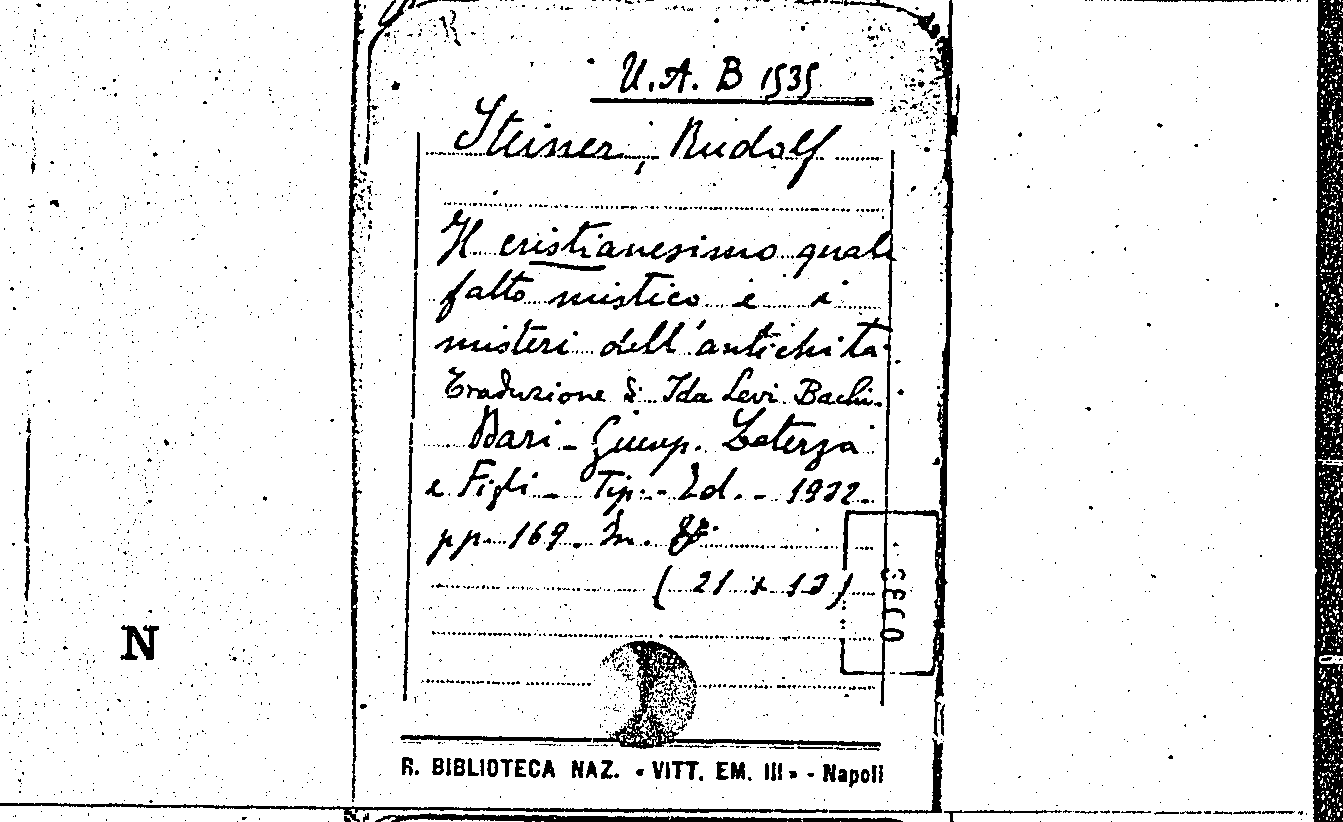 U.A. B 1535
Steiner, Rudolf
Il cristianesimo quale
fatto mistico e i
misteri dell'antichità.
Traduzione di Ida Levi Bachi.
Bari - Giusep. Laterza
e Figli - Tip. - Ed. - 1932.
pp. 169. In. 8º.
(21 x 13)
N
R. BIBLIOTECA NAZ. « VITT. EM. III » - Napoli